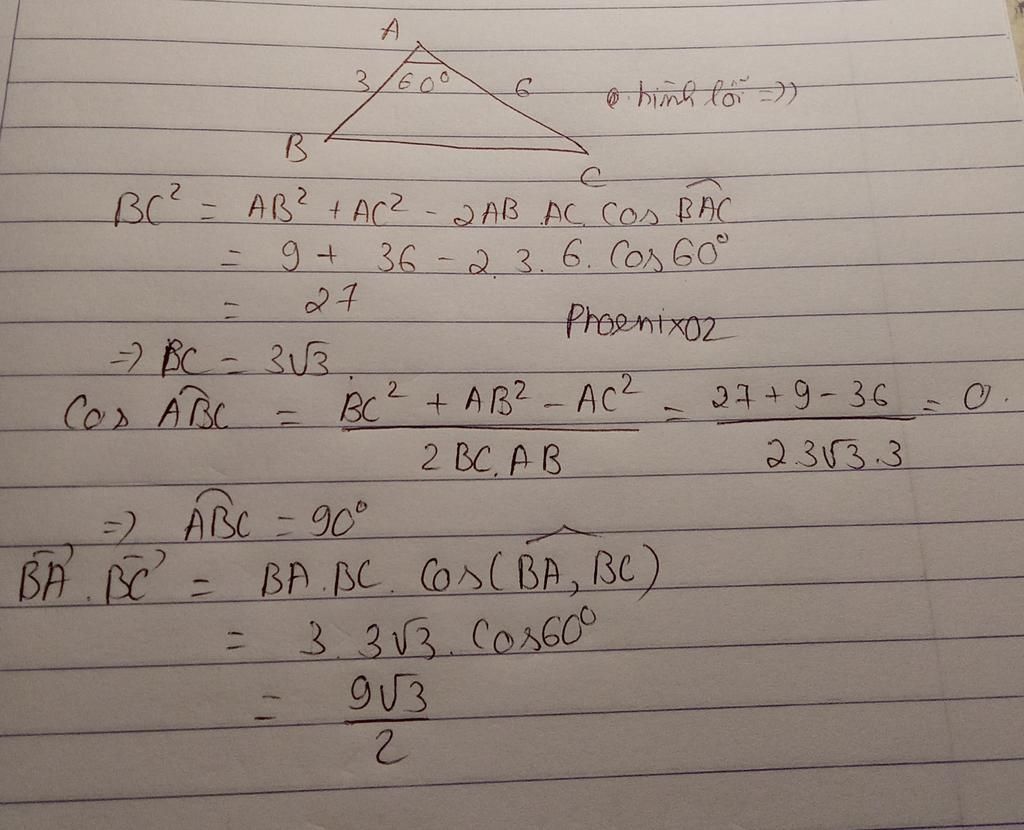 A
3 60° 6 hình lỗi =))
B
C
BC² = AB² + AC² - 2AB.AC.Cos BAC
= 9 + 36 - 2.3.6.Cos60°
= 27
Phoenix02
=> BC = 3√3.
Cos ABC = BC² + AB² - AC² / 2BC.AB = 27+9-36 / 2.3√3.3 = 0.
=> ABC = 90°
BA.BC = BA.BC.Cos(BA, BC)
= 3.3√3.Cos60°
= 9√3 / 2